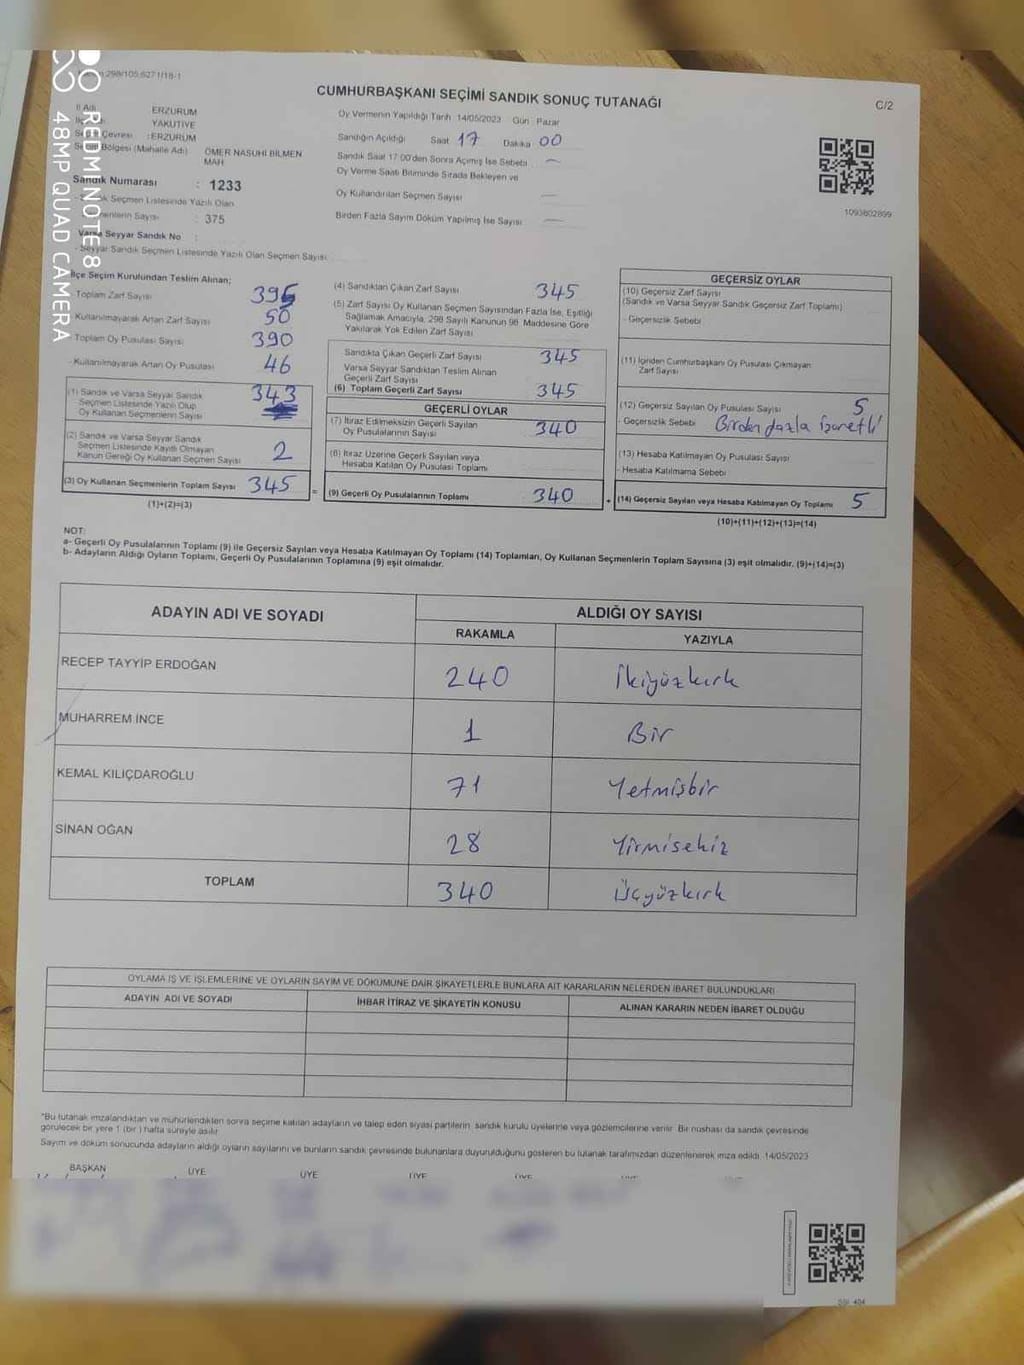 298/105,6271/18-1
CUMHURBAŞKANI SEÇİMİ SANDIK SONUÇ TUTANAĞI
C/2
REDMI NOTE 8
48MP QUAD CAMERA
İl Adı ERZURUM
YAKUTİYE
Seçim Çevresi : ERZURUM
Seçim Bölgesi (Mahalle Adı) ÖMER NASUHİ BİLMEN MAH
Sandık Numarası : 1233
Sandık Seçmen Listesinde Yazılı Olan
Seçmenlerin Sayısı : 375
Varsa Seyyar Sandık No :
- Seyyar Sandık Seçmen Listesinde Yazılı Olan Seçmen Sayısı
Oy Vermenin Yapıldığı Tarih 14/05/2023 Gün Pazar
Sandığın Açıldığı Saat 17 Dakika 00
Sandık Saat 17:00'den Sonra Açımış İse Sebebi —
Oy Verme Saati Bitiminde Sırada Bekleyen ve
Oy Kullandırılan Seçmen Sayısı —
Birden Fazla Sayım Döküm Yapılmış İse Sayısı —
1093802899
İlçe Seçim Kurulundan Teslim Alınan;
- Toplam Zarf Sayısı 395
- Kullanılmayarak Artan Zarf Sayısı 50
- Toplam Oy Pusulası Sayısı 390
- Kullanılmayarak Artan Oy Pusulası 46
(1) Sandık ve Varsa Seyyar Sandık
Seçmen Listesinde Yazılı Olup
Oy Kullanan Seçmenlerin Sayısı 343
(2) Sandık ve Varsa Seyyar Sandık
Seçmen Listesinde Kayıtlı Olmayan
Kanun Gereği Oy Kullanan Seçmen Sayısı 2
(3) Oy Kullanan Seçmenlerin Toplam Sayısı 345
(1)+(2)=(3)
(4) Sandıktan Çıkan Zarf Sayısı 345
(5) Zarf Sayısı Oy Kullanan Seçmen Sayısından Fazla İse, Eşitliği
Sağlamak Amacıyla, 298 Sayılı Kanunun 98. Maddesine Göre
Yakılarak Yok Edilen Zarf Sayısı
Sandıkta Çıkan Geçerli Zarf Sayısı 345
Varsa Seyyar Sandıktan Teslim Alınan
Geçerli Zarf Sayısı
(6) Toplam Geçerli Zarf Sayısı 345
GEÇERLİ OYLAR
(7) İtiraz Edilmeksizin Geçerli Sayılan
Oy Pusulalarının Sayısı 340
(8) İtiraz Üzerine Geçerli Sayılan veya
Hesaba Katılan Oy Pusulası Toplamı
= (9) Geçerli Oy Pusulalarının Toplamı 340
GEÇERSİZ OYLAR
(10) Geçersiz Zarf Sayısı
(Sandık ve Varsa Seyyar Sandık Geçersiz Zarf Toplamı)
- Geçersizlik Sebebi
(11) İçinden Cumhurbaşkanı Oy Pusulası Çıkmayan
Zarf Sayısı
(12) Geçersiz Sayılan Oy Pusulası Sayısı 5
- Geçersizlik Sebebi Birden fazla işaretli
(13) Hesaba Katılmayan Oy Pusulası Sayısı
- Hesaba Katılmama Sebebi
+ (14) Geçersiz Sayılan veya Hesaba Katılmayan Oy Toplamı 5
(10)+(11)+(12)+(13)=(14)
NOT:
a- Geçerli Oy Pusulalarının Toplamı (9) ile Geçersiz Sayılan veya Hesaba Katılmayan Oy Toplamı (14) Toplamları, Oy Kullanan Seçmenlerin Toplam Sayısına (3) eşit olmalıdır. (9)+(14)=(3)
b- Adayların Aldığı Oyların Toplamı, Geçerli Oy Pusulalarının Toplamına (9) eşit olmalıdır.
ADAYIN ADI VE SOYADI ALDIĞI OY SAYISI
RAKAMLA YAZIYLA
RECEP TAYYİP ERDOĞAN 240 İkiyüzkırk
MUHARREM İNCE 1 Bir
KEMAL KILIÇDAROĞLU 71 Yetmişbir
SİNAN OĞAN 28 Yirmisekiz
TOPLAM 340 Üçyüzkırk
OYLAMA İŞ VE İŞLEMLERİNE VE OYLARIN SAYIM VE DÖKÜMÜNE DAİR ŞİKAYETLERLE BUNLARA AİT KARARLARIN NELERDEN İBARET BULUNDUKLARI
ADAYIN ADI VE SOYADI İHBAR İTİRAZ VE ŞİKAYETİN KONUSU ALINAN KARARIN NEDEN İBARET OLDUĞU
"Bu tutanak imzalandıktan ve mühürlendikten sonra seçime katılan adayların ve talep eden siyasi partilerin sandık kurulu üyelerine veya gözlemcilerine verilir. Bir nüshası da sandık çevresinde
görülecek bir yere 1 (bir ) hafta süreyle asılır.
Sayım ve döküm sonucunda adayların aldığı oyların sayılarını ve bunların sandık çevresinde bulunanlara duyurulduğunu gösteren bu tutanak tarafımızdan düzenlenerek imza edildi. 14/05/2023
BAŞKAN ÜYE ÜYE ÜYE ÜYE